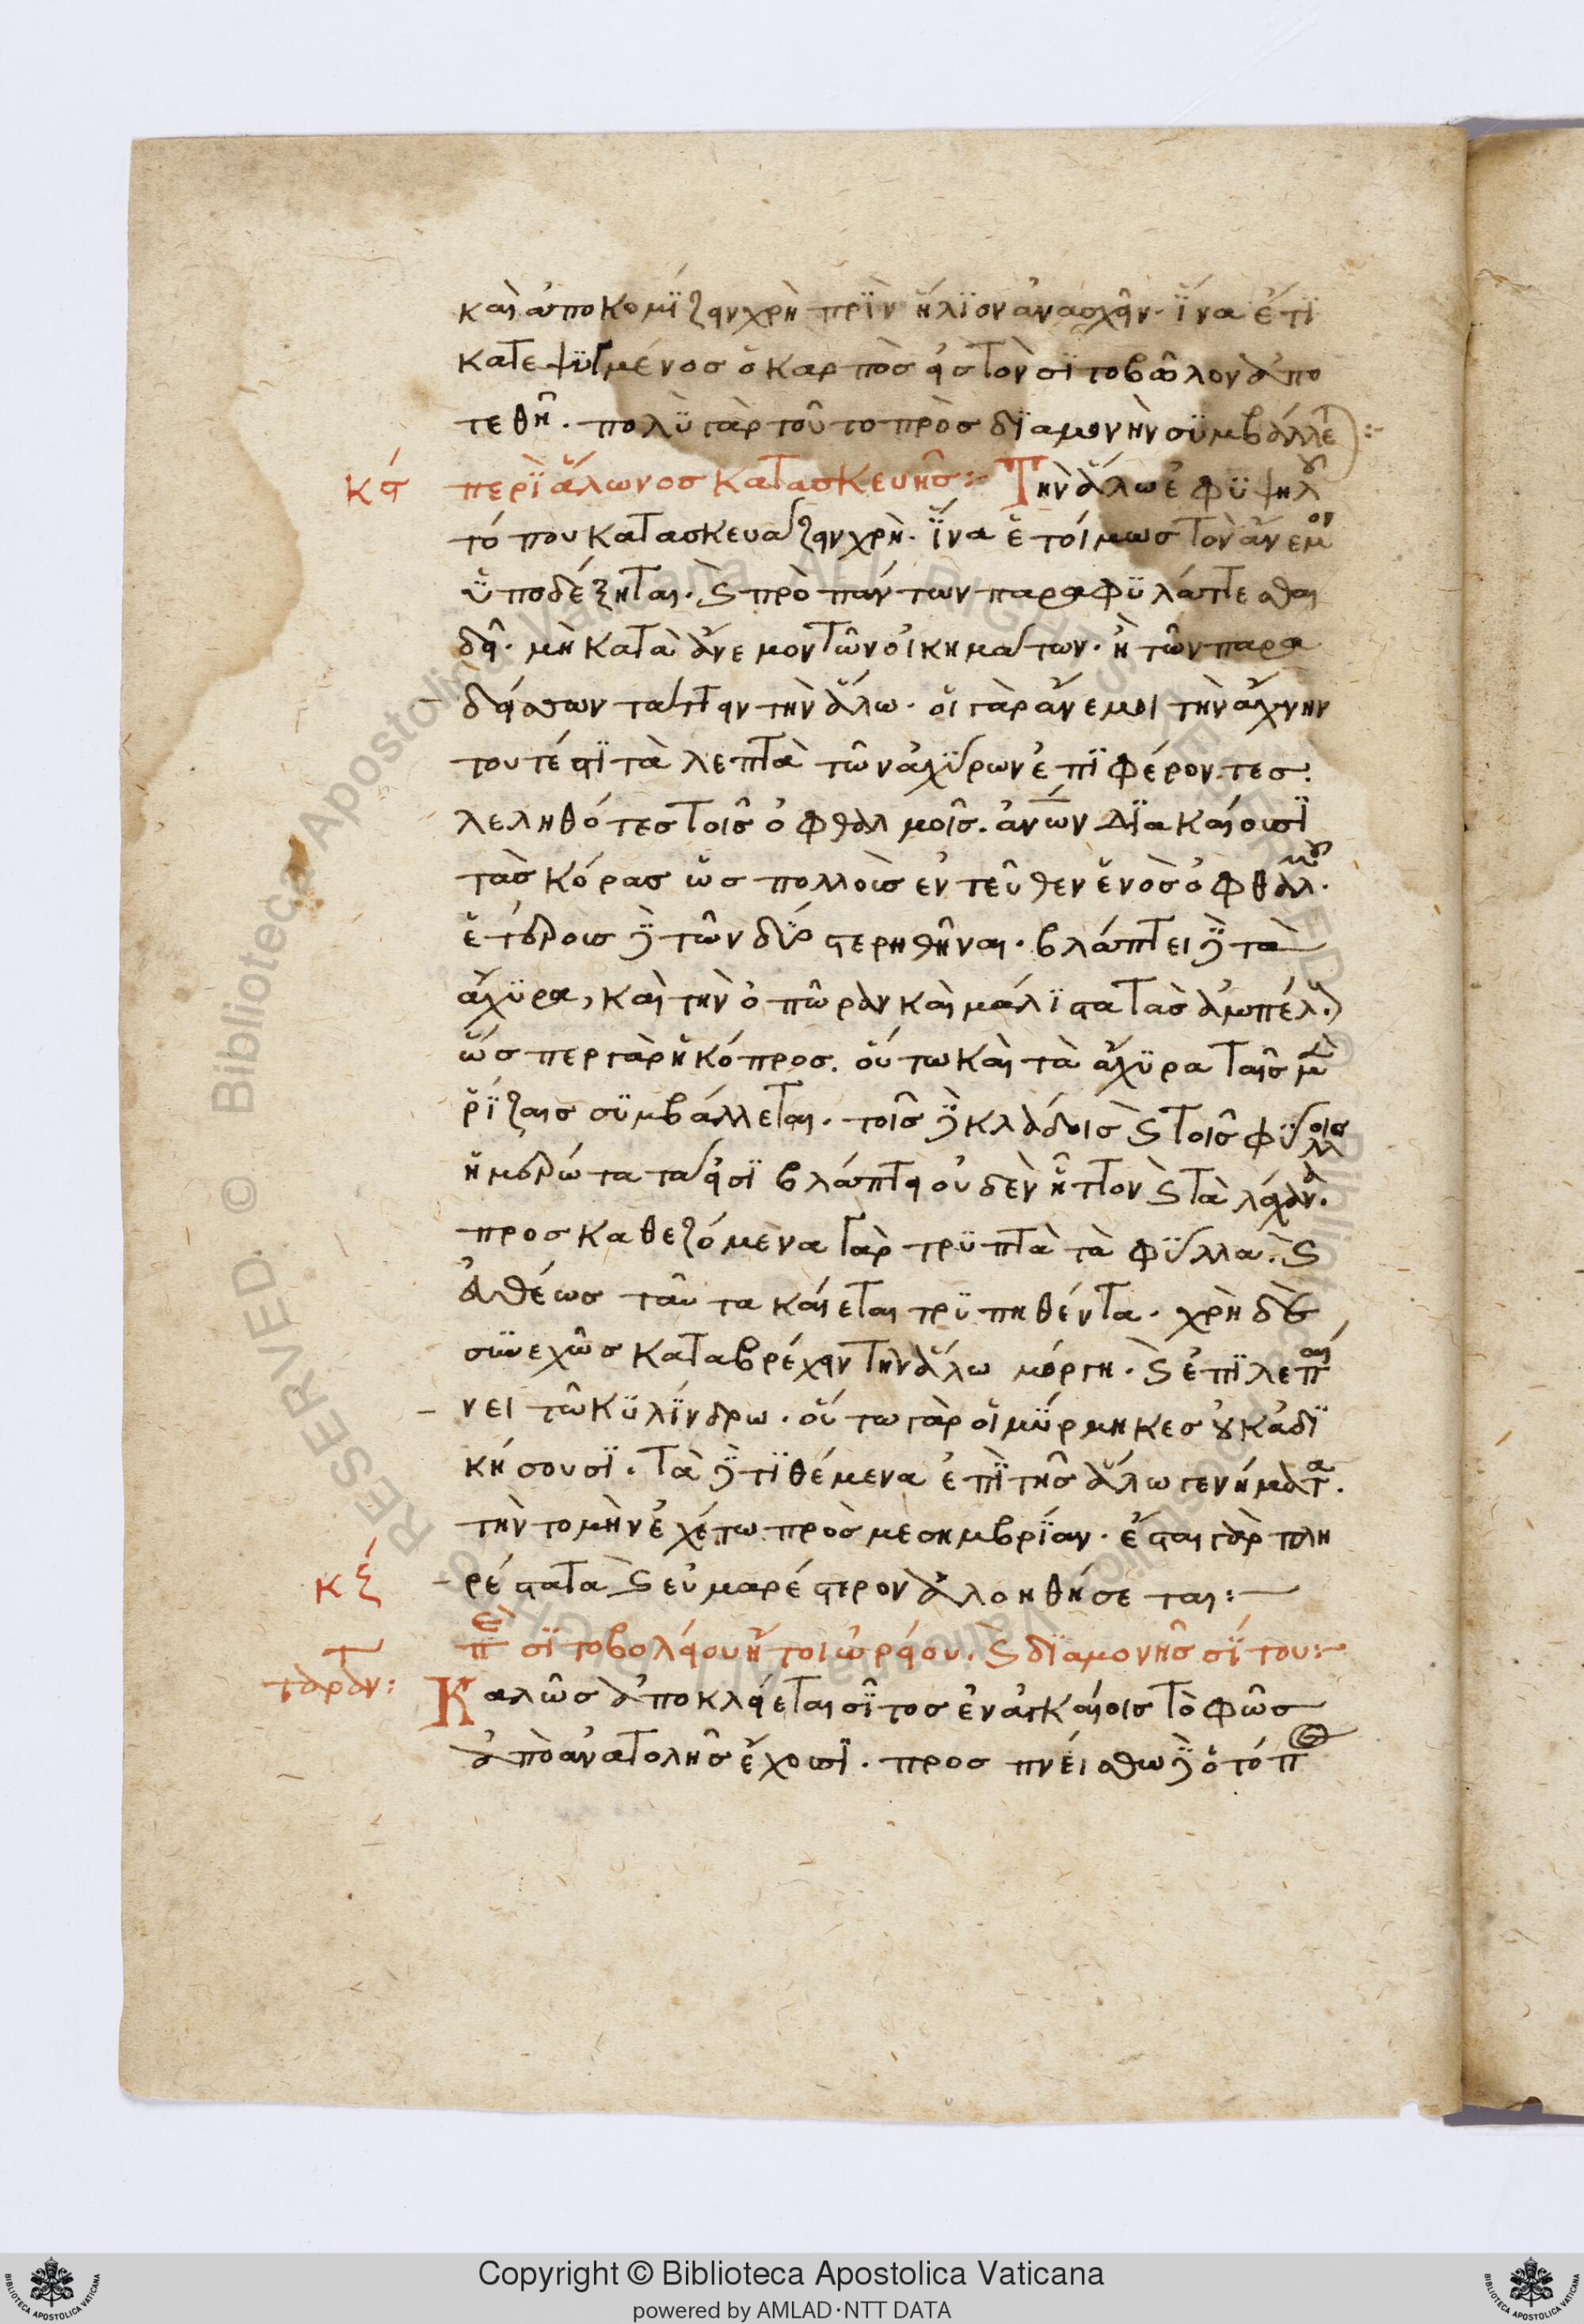 καὶ ἀποκομίζειν χρὴ πρὶν ἥλιον ἀνασχεῖν. ἵνα ἔτι
κατεψυγμένος ὁ καρπὸς εἰς τὸν σιτοβολονα ἀπο
τεθῆ. πολὺ γὰρ τοῦτο πρὸς διαμονὴν συμβάλλε :-
κϛ περὶ ἅλωνος κατασκευῆς :- Τὴν ἅλω ἐφ ὑψηλοῦ
τόπου κατασκευάζειν χρὴ. ἵνα ἑτοίμως τὸν ἄνεμον
ὑποδέξηται. καὶ πρὸ πάντων παραφυλάττεσθαι
δεῖ. μὴ κατὰ ἄνεμον τῶν οἰκημάτων. ἢ τῶν παρα
δείσων τάττειν τὴν ἅλω. οἱ γὰρ ἄνεμοι τὴν ἄχνην
τουτέστι τὰ λεπτὰ τῶν ἀχύρων ἐπιφέροντες.
λεληθότες τοῖς ὀφθαλμοῖς. ἀνων διακαίουσι
τὰς κόρας ὡς πολλοὺς ἐντεῦθεν ἑνὸς ὀφθαλμοῦ.
ἑτέρους δὲ τῶν δύο στερηθῆναι. βλάπτει δὲ τὰ
ἄχυρα, καὶ τὴν ὀπῶραν καὶ μάλιστα τὰς ἀμπέλους
ὥσπερ γὰρ ἡ κόπρος. οὕτω καὶ τὰ ἄχυρα ταῖς μὲν
ῥίζαις συμβάλλεται. τοῖς δὲ κλάδοις καὶ τοῖς φύλλοις
ἡμερώτατά εἰσι βλάπτει οὐδὲν ἧττον καὶ τὰ λάχανα.
προσκαθεζόμενα γὰρ τρυπτὰ τὰ φύλλα. καὶ
εὐθέως ταῦτα καίεται τρυπηθέντα. χρὴ δὲ
συνεχῶς καταβρέχειν τὴν ἅλω μόργη. καὶ ἐπιλεπται
νει τῶ κυλίνδρω. οὕτω γὰρ οἱ μύρμηκες οὐκ ἀδι
κήσουσι. τὰ δὲ τιθέμενα ἐπὶ τῆς ἅλω γενήματα.
τὴν τομὴν ἐχέτω πρὸς μεσημβρίαν. ἔσται γὰρ πλη
ρέστατα καὶ εὐμαρέστερον ἀλοηθήσεται :-
κζ περὶ σιτοβολείου ἤτοι ὡρείου. καὶ διαμονῆς σίτου :-
ταραν: Καλῶς ἀποκλείεται σῖτος ἐν οἰκίοις τὸ φῶς
ἀπὸ ἀνατολῆς ἔχουσι. προσπνείσθω δὲ ὁ τόπος
Copyright © Biblioteca Apostolica Vaticana
powered by AMLAD·NTT DATA